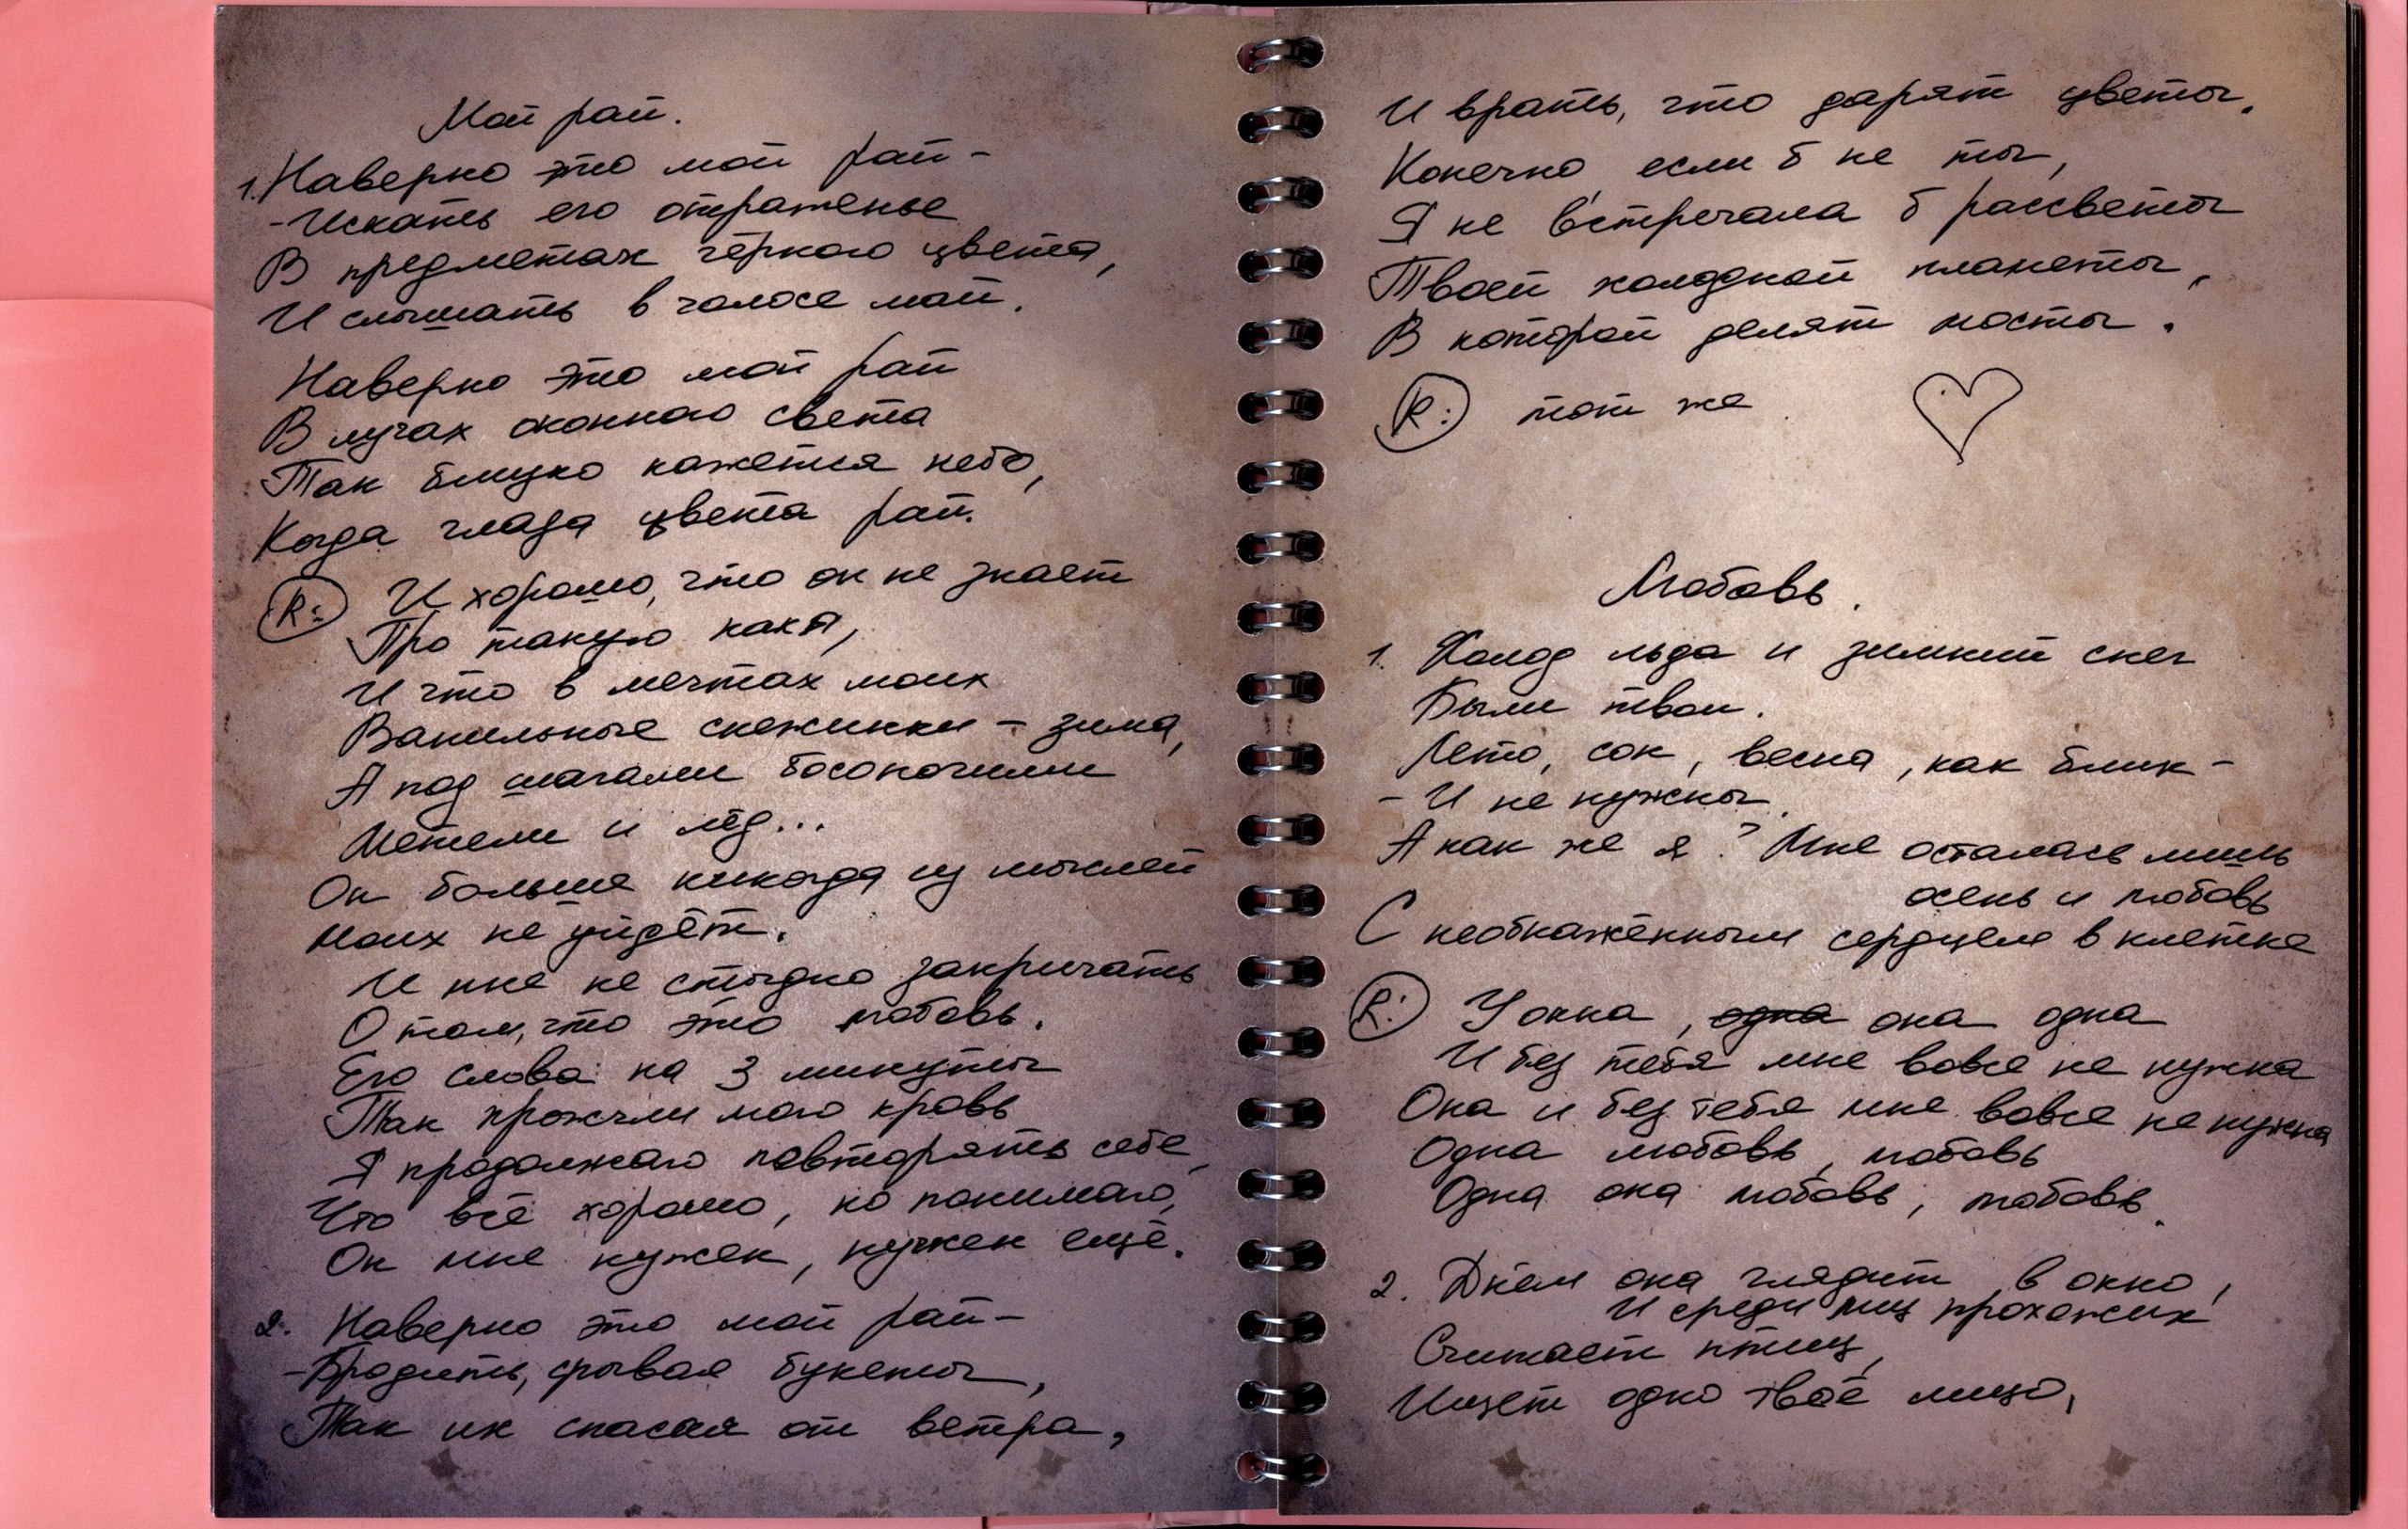 Мой рай.
1. Наверно это мой рай –
- Искать его отраженье
В предметах чёрного цвета,
И слышать в голосе май.
Наверно это мой рай
В лучах оконного света
Так близко кажется небо,
Когда глаза цвета рай.
R: И хорошо, что он не знает
Про такую как я,
И что в мечтах моих
Ванильные снежинки – зима,
А под шагами босоногими
Метели и лёд...
Он больше никогда из мыслей
моих не уйдёт.
И мне не стыдно закричать
О том, что это любовь.
Его слова на 3 минуты
Так прожгли мою кровь
Я продолжаю повторять себе,
Что всё хорошо, но понимаю,
Он мне нужен, нужен ещё.
2. Наверно это мой рай –
- Бродить, срывая букеты,
Так их спасая от ветра,
И врать, что дарят цветы.
Конечно если б не ты,
Я не встречала б рассветы
Твоей холодной планеты,
В которой делят мосты.
R: тот же
Любовь.
1. Холод льда и зимний снег
Были твои.
Лето, сок, весна, как блик –
- И не нужны.
А как же я? Мне осталась лишь
осень и любовь
С необнажённым сердцем в клетке
R: У окна, одна она одна
И без тебя мне вовсе не нужна
Она и без тебя мне вовсе не нужна
Одна любовь, любовь
Одна она любовь, любовь.
2. Днём она глядит в окно,
И среди лиц прохожих
Считает птиц,
Ищет одно твоё лицо,